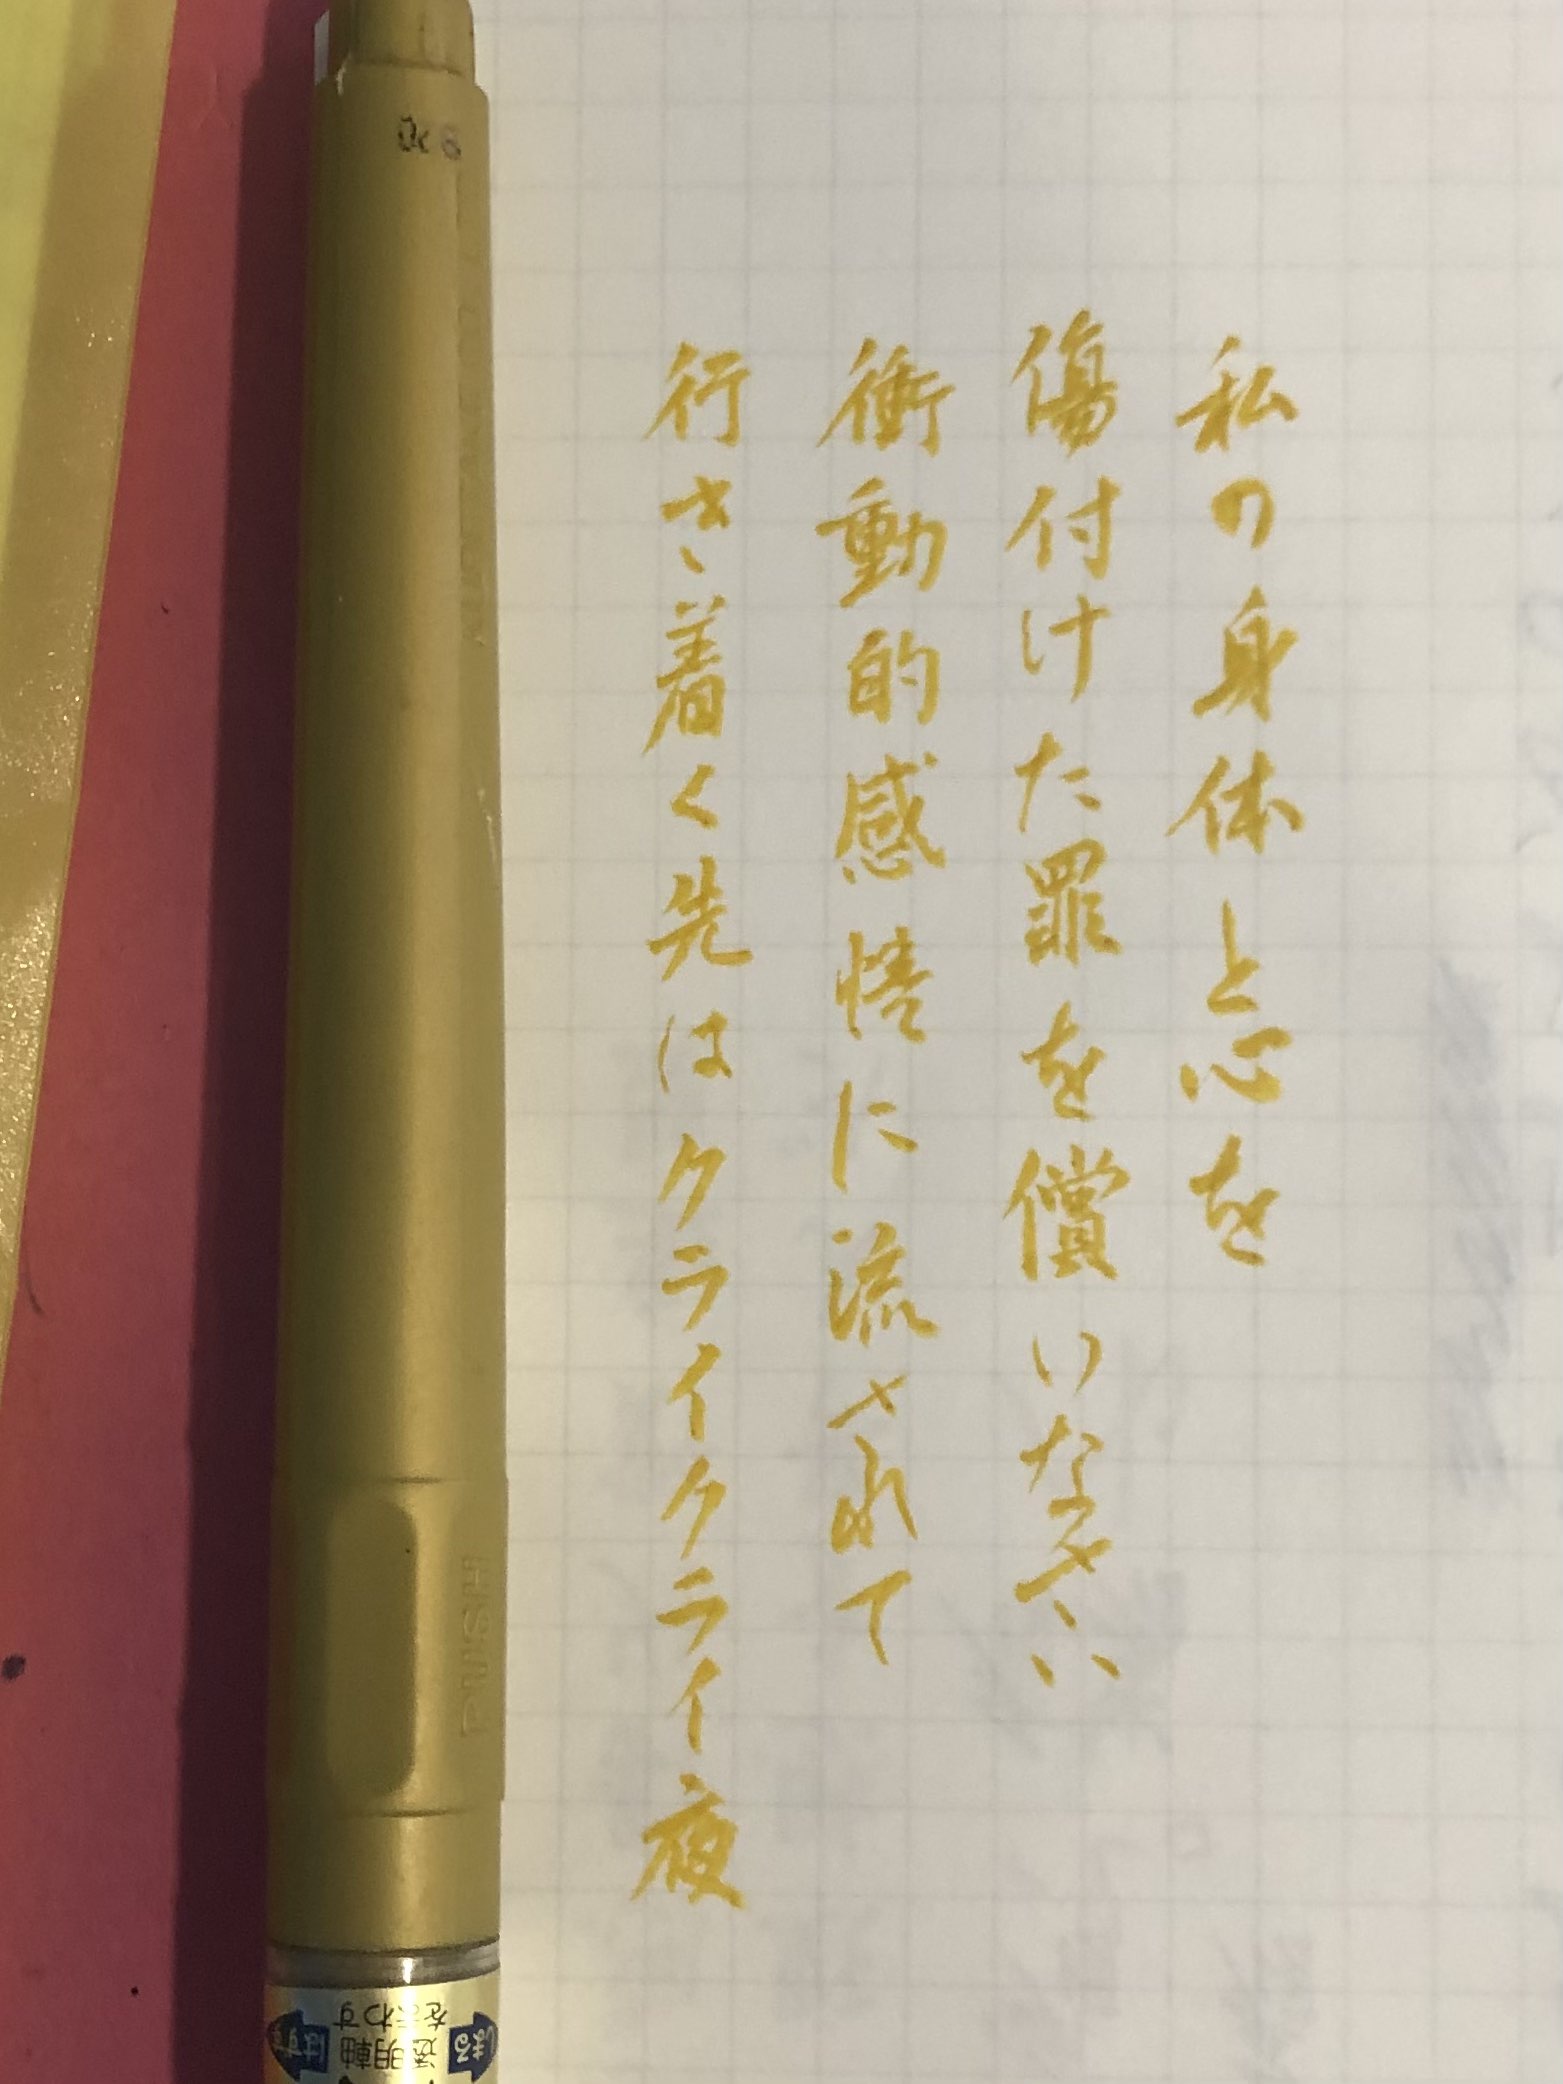 私の身体と心を
傷付けた罪を償いなさい
衝動的感情に流されて
行き着く先はクライクライ夜
PUSH
はずす
透明軸
をまわす
しまる